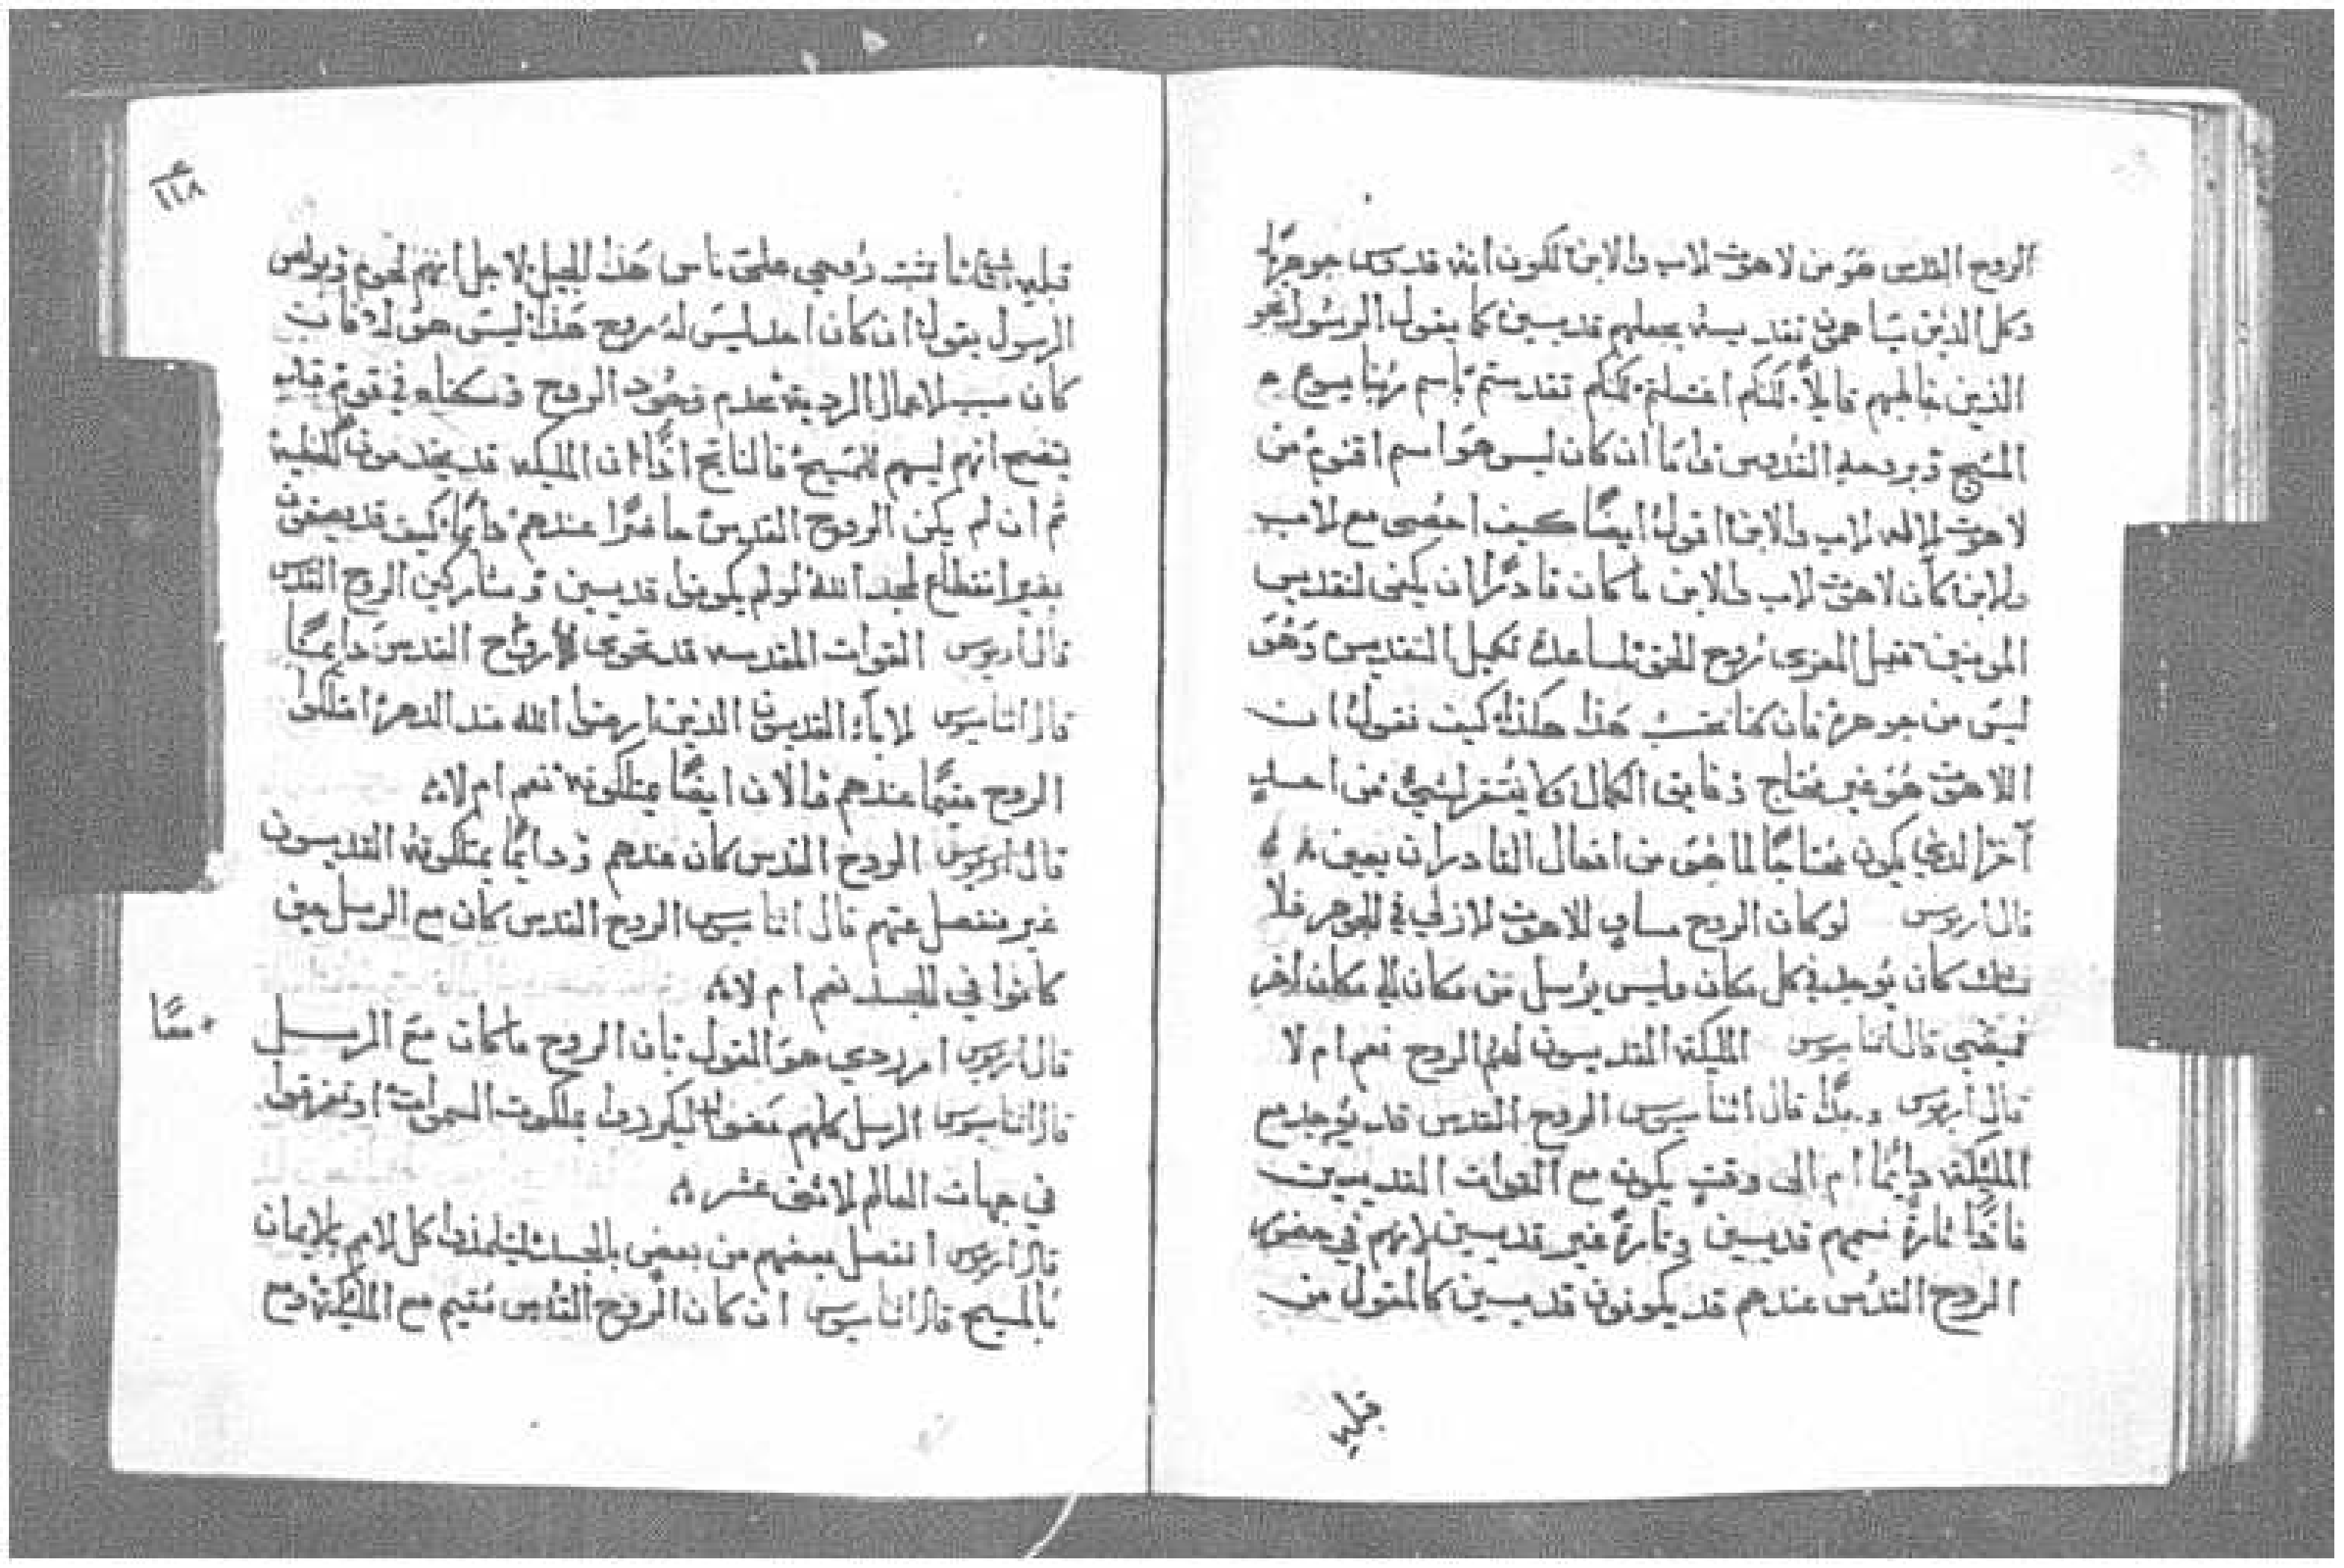 الروح القدس هو من لاهوت الاب والابن لكون انه قدوس جوهريًا
وكل الذين يساهمون تقديسه يجعلهم قديسين كما يقول الرسول نحو
الذين خاطبهم قايلاً لكنكم اغتسلتم لكنكم تقدستم باسم ربنا يسوع
المسيح وبروحه القدوس واما ان كان ليس هو اسم اقنوم من
لاهوت الاله الاب والابن اقول ايضًا كيف احصى مع الاب
والابن كأن لاهوت الاب والابن ما كان قادرًا ان يكفي لتقديس
المومنين فقبل المعزي روح الحق لمساعدة تكميل التقديس وهو
ليس من جوهره فان كنا نحسب هذا هكذا كيف نقول ان
اللاهوت هو غير محتاج وفايق الكمال ولا يفتقر لشي من احد
آخر الذي يكون محتاجًا لما هو من افعال القادر ان يعين
قال اريوس لو كان الروح مساوٍ للاهوت الازلي في الجوهر فلا
شك كان يوجد في كل مكان وليس يرسل من مكان الى مكان اخر
فيمضي قال اتناسيوس المليكة القديسون لهم الروح نعم ام لا
قال اريوس قال اتناسيوس الروح القدس قد يوجد مع
المليكة دايمًا ام الى وقتٍ يكون مع القوات القديسين
فاذًا تارةً نسميهم قديسين وتارةً غير قديسين لانهم في حضور
الروح القدس عندهم قد يكونون قديسين كالمقول من
قبله
١١٨
قبله ما تثبت روحي على ناس هذا الجيل لاجل انهم لحوم وبولص
الرسول يقول ان كان احد ليس له روح هذا ليس هو له فان
كان سبب الاعمال الردية عدم وجود الروح وسكناه في قوم قد
يتضح انهم ليسهم للمسيح فالناتج اذًا ان المليكه قد يخدمون الخطية
ثم ان لم يكن الروح القدس حاضرًا عندهم دايمًا كيف قد يصفون
بغير انقطاع لمجد الله لو لم يكونوا قديسين ومشاركين الروح القدس
قال اريوس القوات المقدسه قد تحوي الروح القدس دايمًا
قال اتناسيوس الاباء القديسون الذين ارضوا الله منذ الدهر امتلكوا
الروح مقيمًا عندهم والان ايضًا يمتلكونه نعم ام لا
قال اريوس الروح القدس كان عندهم ودايمًا يمتلكونه القديسون
غير منفصل عنهم قال اتناسيوس الروح القدس كان مع الرسل حين
كانوا في الجسد نعم ام لا
قال اريوس امر ردي هو القول بان الروح ما كان مع الرسل
معًا
قال اتناسيوس الرسل كلهم مضوا ليكرزوا بملكوت السموات او تفرقوا
في جهات العالم الاثني عشر
قال اريوس انفصل بعضهم من بعض بالجسد ليتلمذوا كل الامم بالايمان
بالمسيح قال اتناسيوس ان كان الروح القدس مقيم مع المليكة ومع